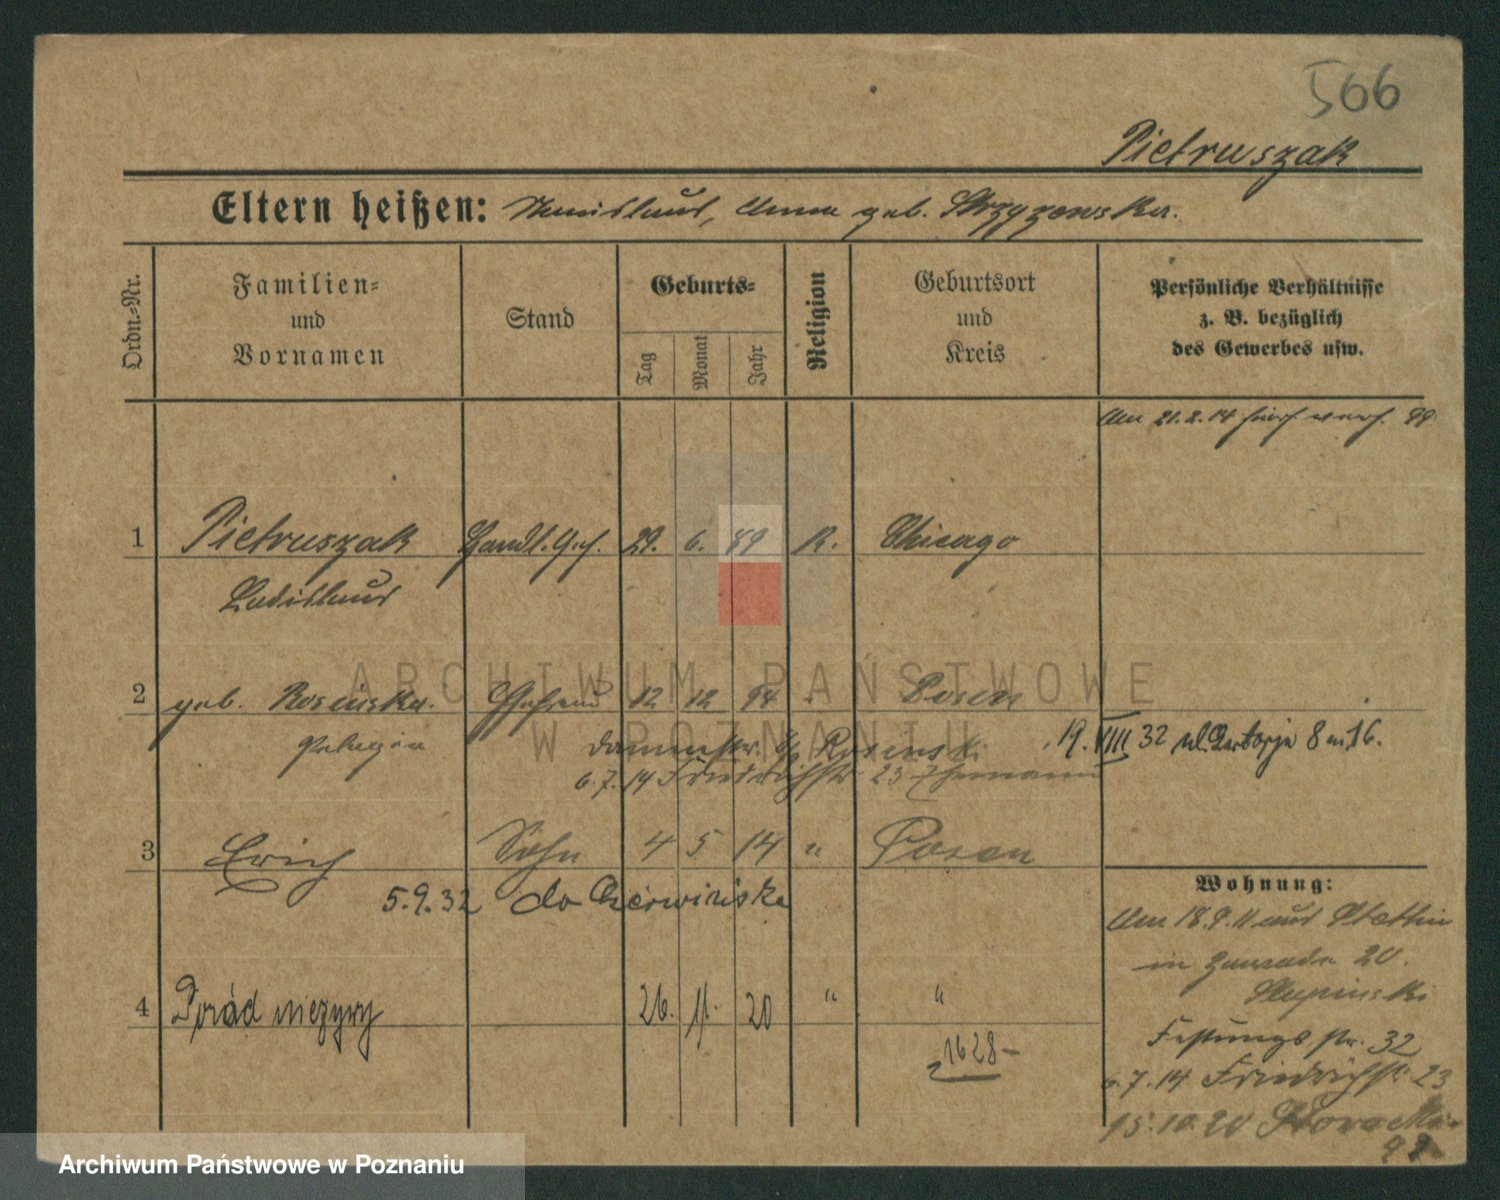 566
Pietruszak
Eltern heißen: Stanislaus, Anna geb. Strzyzewska.
Ordn.-Nr.
Familien-
und
Vornamen
Stand
Geburts-
Tag
Monat
Jahr
Religion
Geburtsort
und
Kreis
Persönliche Verhältnisse
z. B. bezüglich
des Gewerbes usw.
Am 21.2.14
1 Pietruszak Handl. Geh. 29. 6. 89 R. Chicago
Ladislaus
2 geb. Rosinska. Ehefrau 12 12 94 " Posen
Pelagia
Rosinski
19.VIII 32 ul. 8 m. 16.
6.7.14 Friedrichstr 23 Ehemann
3 Erich Sohn 4 5 14 " Posen
5.9.32 do Czerwińska
Wohnung:
Am 18.9.11 aus Stettin
in 20.
Slupinski
4 Poród nieżywy 26. 11. 20 " "
Festungsstr. 32
1628
6.7.14 Friedrichstr 23
15.10.20
ARCHIWUM PAŃSTWOWE
W POZNANIU
Archiwum Państwowe w Poznaniu